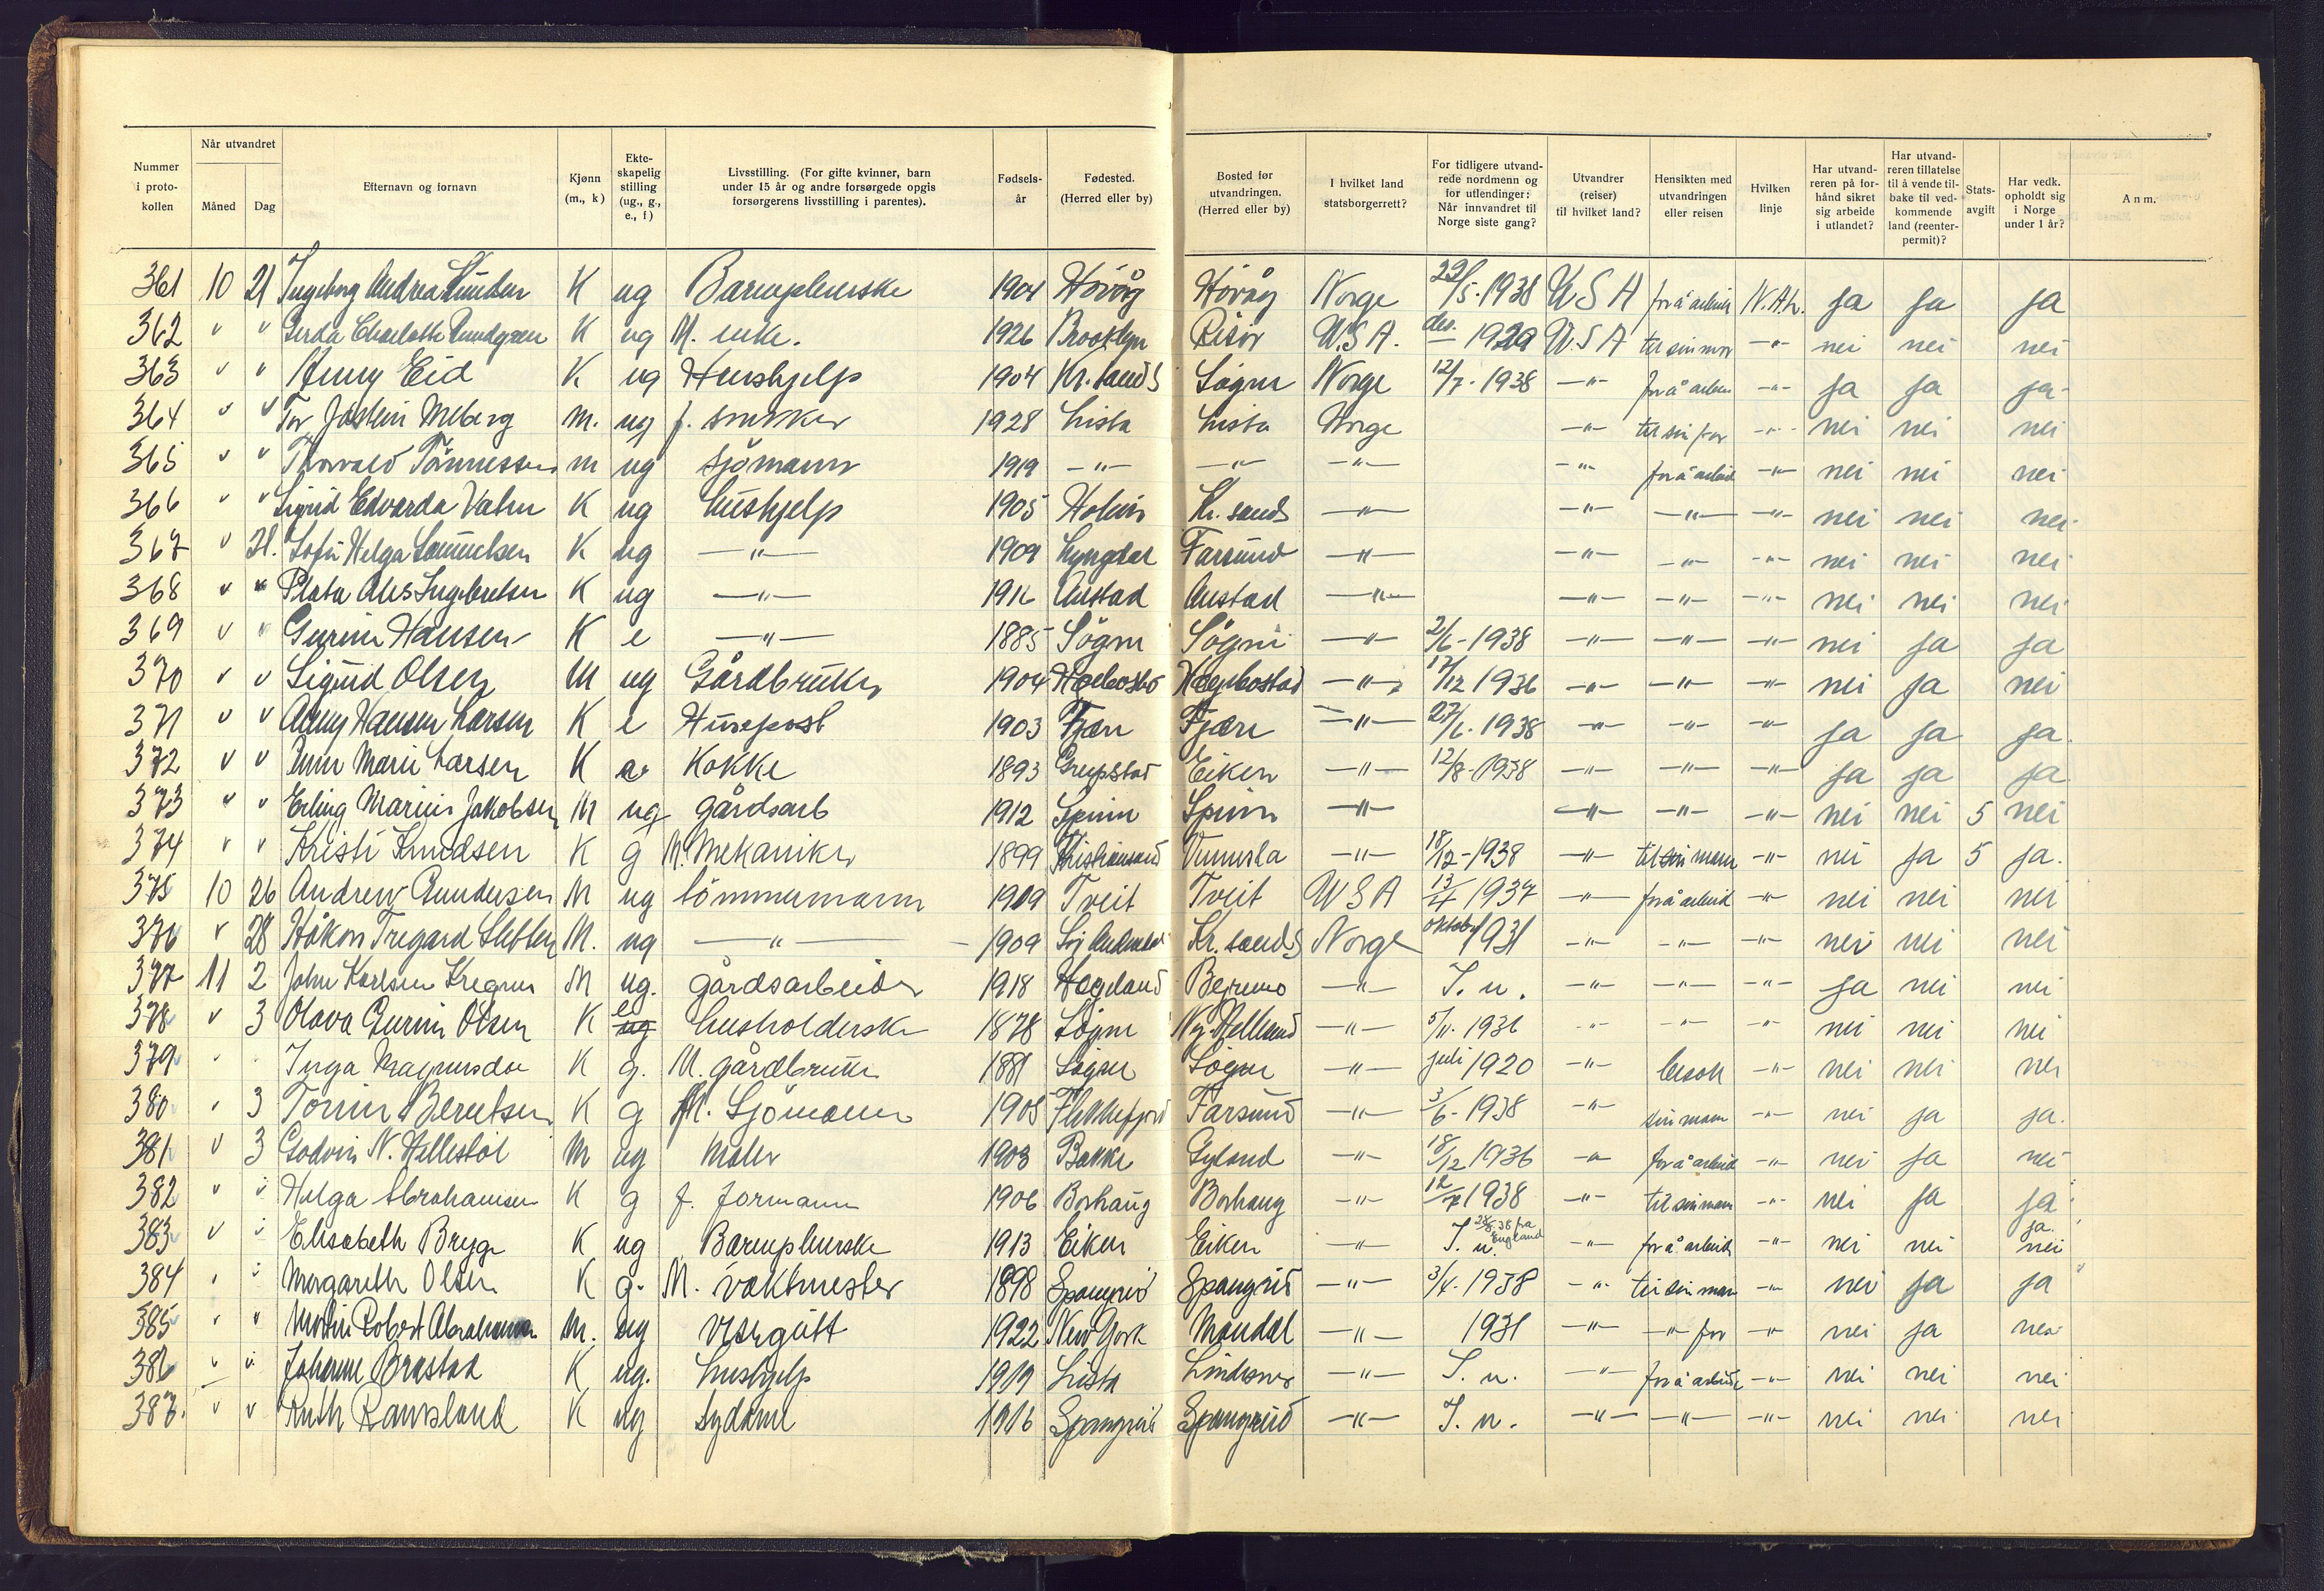 Nummer i proto- kollen | Når utvandret Måned Dag | Efternavn og fornavn | Kjønn (m., k) | Ekte- skapelig stilling (ug., g., e., f) | Livsstilling. (For gifte kvinner, barn under 15 år og andre forsørgede opgis forsørgerens livsstilling i parentes). | Fødsels- år | Fødested. (Herred eller by) | Bosted før utvandringen. (Herred eller by) | I hvilket land statsborgerrett? | For tidligere utvand- rede nordmenn og for utlendinger: Når innvandret til Norge siste gang? | Utvandrer (reiser) til hvilket land? | Hensikten med utvandringen eller reisen | Hvilken linje | Har utvand- reren på for- hånd sikret sig arbeide i utlandet? | Har utvand- reren tillatelse til å vende til- bake til ved- kommende land (reenter- permit)? | Stats- avgift | Har vedk. opholdt sig i Norge under 1 år? | Anm.
361 10 21 Ingeborg Andrea K ug Barnepleierske 1904 Høvåg Høvåg Norge 29/5-1938 U S A for å arbeide N.A.L. ja ja ja
362 " " Gerda Charlotte Rundgren K ug M. enke. 1926 Brooklyn Risør U.S.A. des. 1929 U.S A til sin mor -"- nei nei nei
363 " " Henny Eid K ug Hushjelp 1904 Kr.sand S Søgne Norge 12/7-1938 -"- for å arbeide -"- ja ja ja
364 " " Tor Jostein Meberg m. ug f. snekker 1928 Lista Lista Norge -"- til sin far -"- nei nei nei
365 " " Thorvald Tönnessen m ug sjömann 1919 -"- -"- -"- -"- for å arbeide -"- nei nei nei
366 " " Sigrid Edvarda K ug hushjelp 1905 Kr. sand S -"- -"- -"- -"- nei nei nei
367 " 21. Sofie Helga Samuelsen K ug -"- 1909 Lyngdal Farsund -"- -"- -"- -"- nei nei nei
368 " " Ingebretsen K ug -"- Austad Austad -"- -"- -"- -"- nei nei nei
369 " " Gurine Hansen K e -"- 1885 Sögne Sögne -"- 2/6-1938 -"- -"- -"- nei ja ja
370 " " Sigurd Olsen M ug Gårdbruker 1904 Hægebostad Hægebostad -"- 17/12 1936 -"- -"- -"- nei ja nei
371 " " Hansen Larsen K e Husepost 1903 Fjære Fjære -"- 27/6-1938 -"- -"- -"- ja ja ja
372 " " Marie Larsen K Kokke 1893 Grepstad Eiken -"- 12/8-1938 -"- -"- -"- ja ja ja
373 " " Erling Marius Jakobsen M ug gårdsarb 1912 Spind Spind -"- -"- -"- -"- nei nei 5 nei
374 " " Kristi Knudsen K g M. Mekaniker 1899 Kristiansand Vennesla -"- 18/12-1938 -"- til sin mann -"- nei ja 5 ja.
375 10 26 Andrew Gundersen M ug tömmermann 1909 Tveit Tveit U S A 13/4 1937 -"- for å arbeide -"- nei nei nei
376 " 28 Håkon Tregard Sletten M. ug -"- 1909 Kr. sand S Norge oktober 1931 -"- -"- -"- nei nei nei
377 11 2 John Karlsen M ug. gårdsarbeider 1918 Hægeland -"- I. u. -"- -"- -"- ja nei nei
378 " 3 Olava Gurine Olsen K e husholderske 1878 Søgne Ny-Hellesund -"- 5/11-1936 -"- -"- -"- nei nei nei
379 " " Inga K g. M. gårdbruker 1881 Søgne Søgne -"- juli 1920 -"- besøk -"- nei nei nei
380 " 3 Berntsen K g M. Sjömann 1908 Flekkefjord Farsund -"- 3/6-1938 -"- sin mann -"- nei ja ja.
381 " 3 Godvin N. Hellestöl m ug Maler 1903 Bakke Gyland -"- 18/12 1936 -"- for å arbeide -"- nei ja nei
382 " " Helga Abrahamsen K g f. formann 1906 Borhaug Borhaug -"- 12/7 1938 -"- til sin mann -"- nei ja ja
383 " " Elisabeth Bryge K ug Barnepleierske 1913 Eiken Eiken -"- I. u. 24/8 38 fra England -"- for å arbeide -"- nei nei ja. nei
384 " " Margareth Olsen K g. M. vaktmester 1898 Spangereid Spangereid -"- 1938 -"- til sin mann -"- nei ja ja
385 " " Robert Abrahamsen m. ug visergutt 1922 New York Mandal -"- 1931 -"- -"- far -"- nei ja nei
386 " " Johanne Brastad K ug. hushjelp 1919 Lista Lindesnes -"- I. u. -"- for å arbeide -"- nei nei nei
387. " " Ruth Ramsland K ug sydame 1916 Spangereid Spangereid -"- I. u. -"- -"- -"- nei nei nei